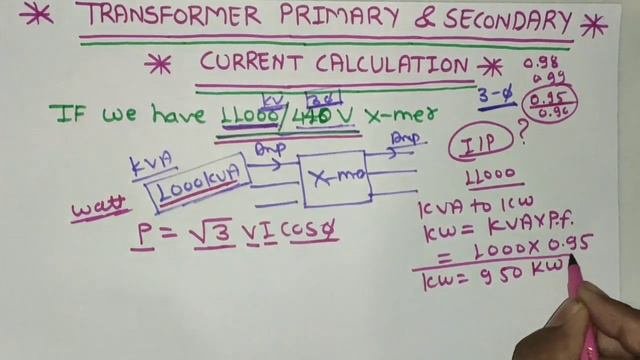 * TRANSFORMER PRIMARY & SECONDARY *
* CURRENT CALCULATION *
0.98
0.99
0.95
0.96
KV 3Φ
IF we have 11000/440 V X-mer
3-Φ
I/P ?
KVA Amp Amp
1000KVA X-me
11000
watt
P = √3 VI COSΦ
KVA to KW
KW = KVA X P.f.
= 1000 X 0.95
KW = 950 KW